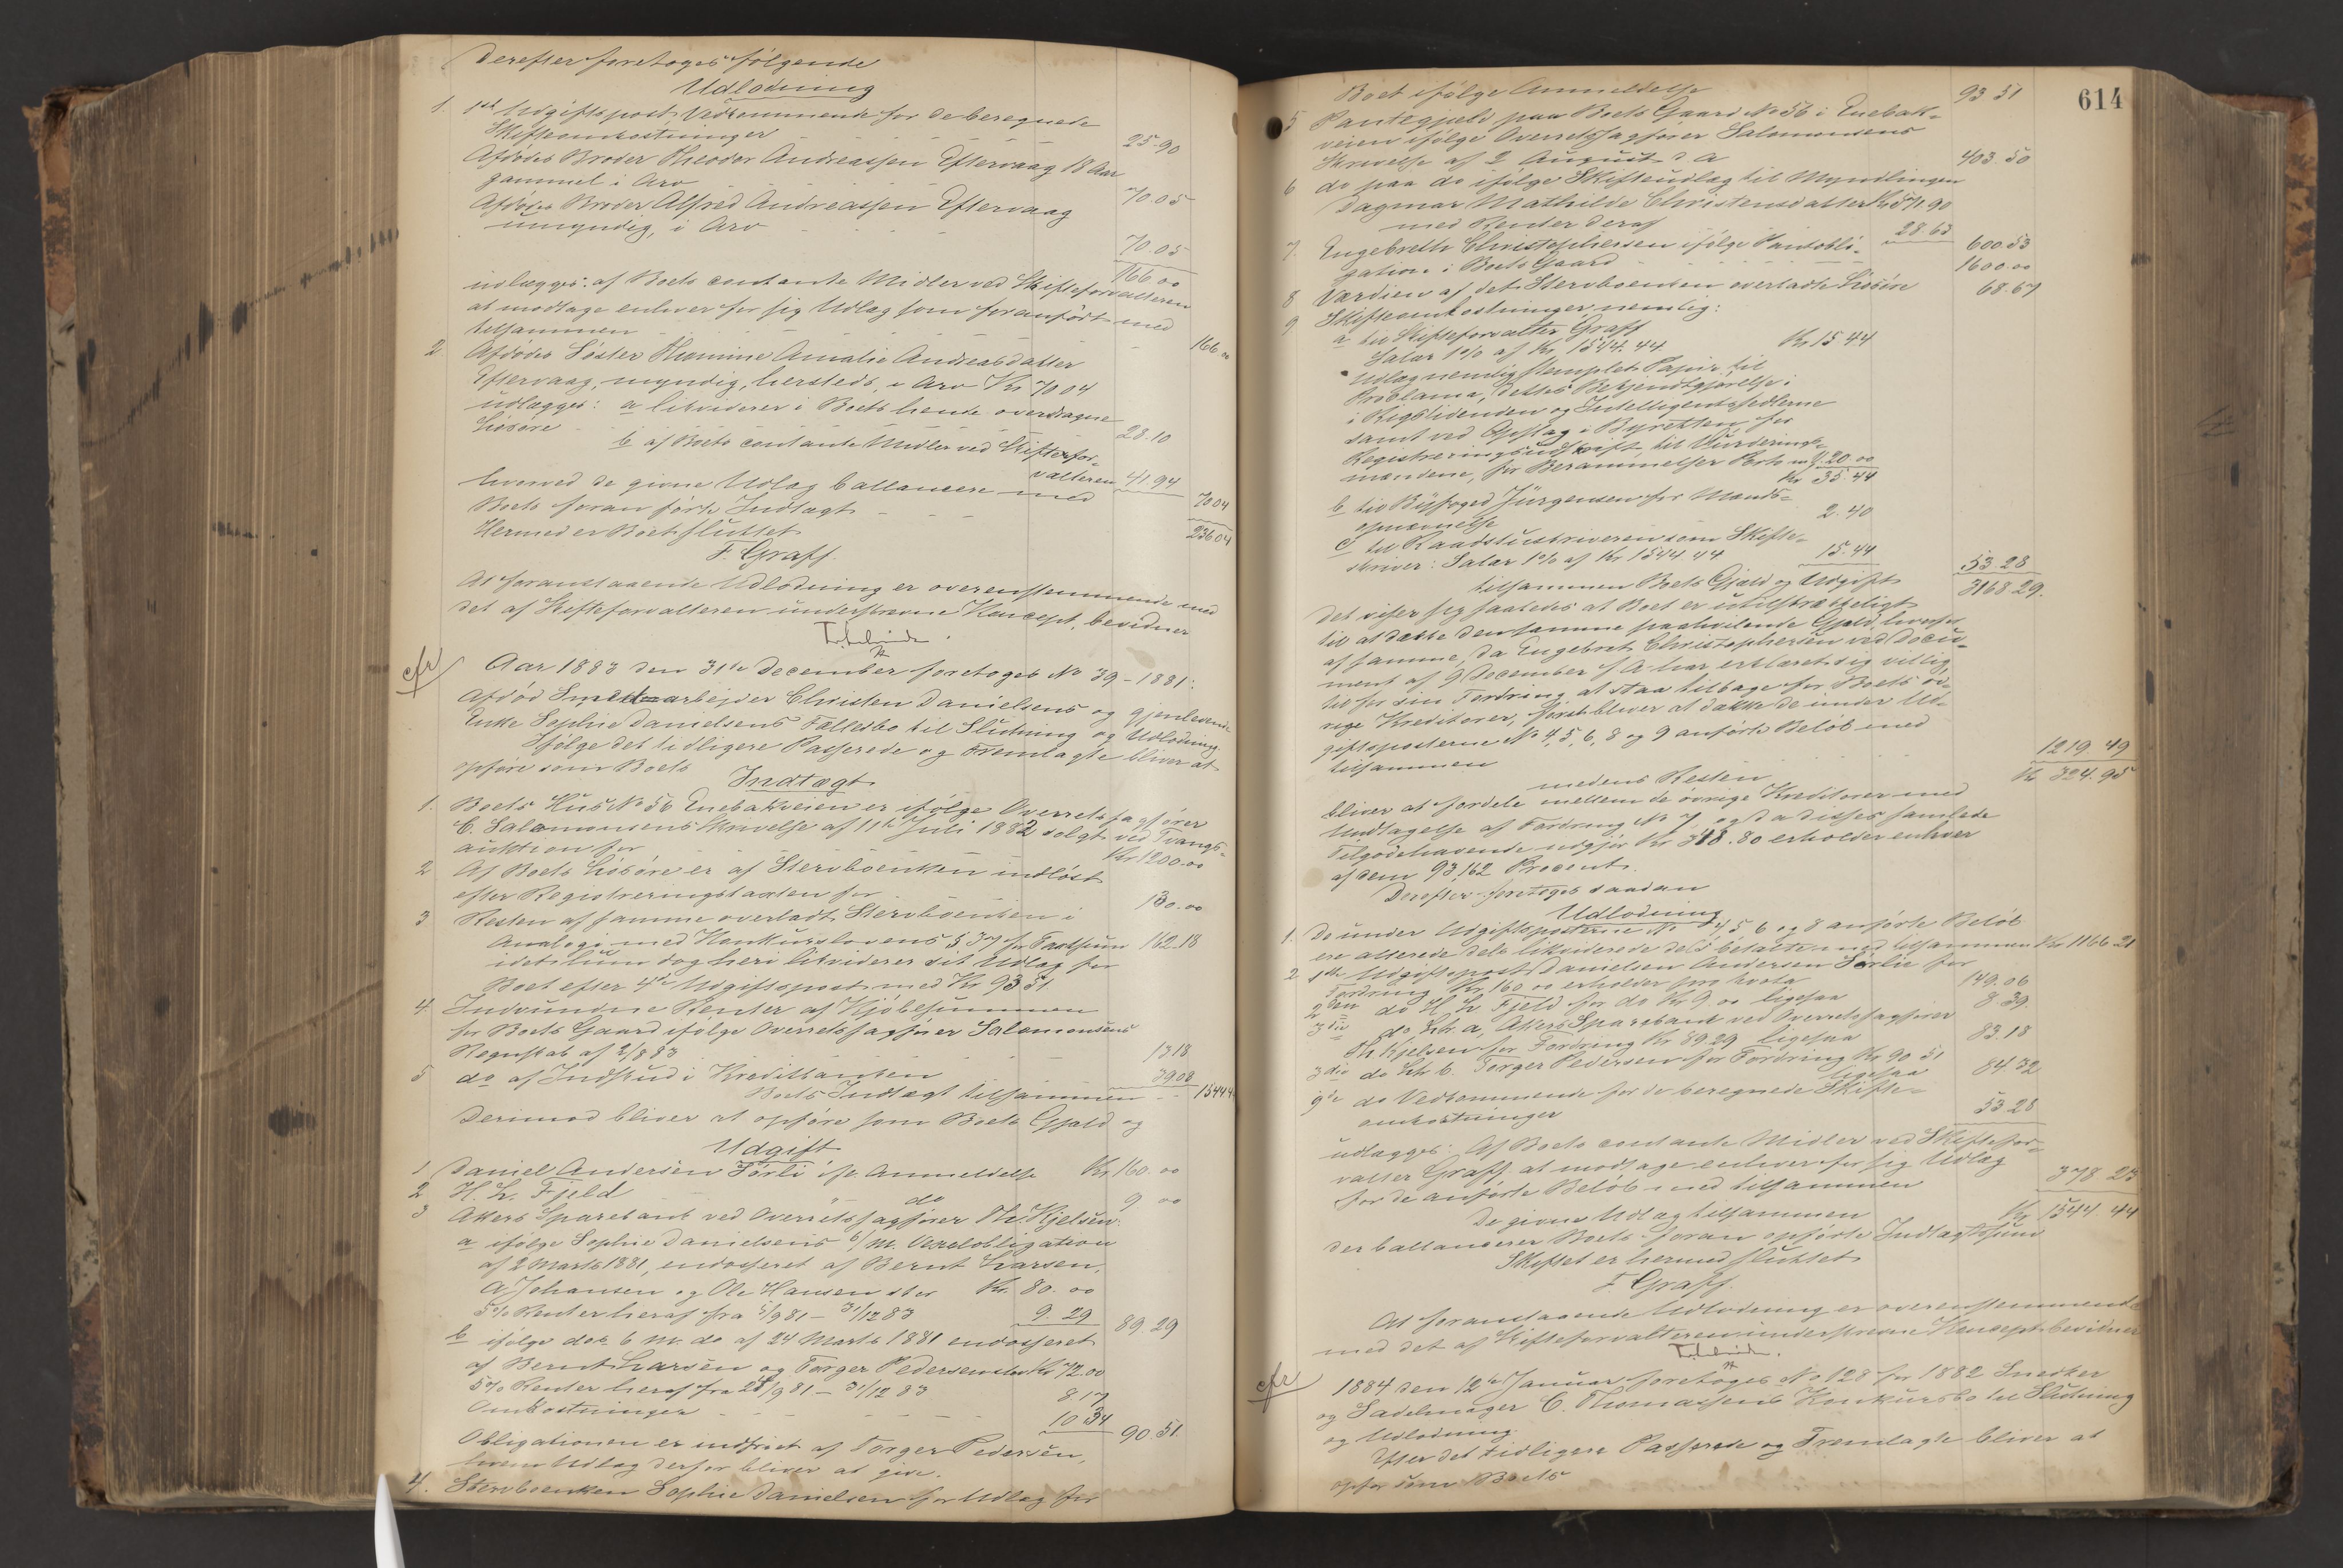 Derefter foretoges følgende
Udlodning
1. 1ste Udgiftspost Vedkommende for de beregnede
Skifteomkostninger 25.90
Afdødes Broder Theodor Andreassen Eftervaag 18 Aar
gammel i Arv 70.05
Afdødes Broder Alfred Andreassen Eftervaag
umyndig, i Arv 70.05
166.00
udlægges: af Boets contante Midler ved Skifteforvalteren
at modtage enhver for sig Udlæg som foranført med
tilsammen 166.00
2 Afdødes Søster Thomine Amalie Andreasdatter
Eftervaag, myndig, hersteds, i Arv Kr 70 04
udlægges: a likviderer i Boets hende overdragne
Løsøre 28.10
b af Boets contante Midler ved Skiftefor-
valteren 41.94
hvorved de givne Udlæg ballancere med 70 04
Boets foran førte Indtægt 236 04
Hermed er Boet sluttet
F. Graff.
At foranstaaende Udlodning er overensstemmende med
det af Skifteforvalteren underskrevne Koncept, bevidner
cfr Aar 1883 den 31te December foretoges No 39 - 1881:
Afdød Smedearbeider Christen Danielsens og gjenlevende
Enke Sophie Danielsens Fællesbo til Slutning og Udlodning
Ifølge det tidligere Passerede og Fremlagte bliver at
opføre som Boets
Indtægt
1. Boets Hus No 56 Enebakveien er ifølge Overretssagfører
C. Salomonsens Skrivelse af 11te Juli 1882 solgt ved Tvangs-
auktion for Kr 1200.00
2 Af Boets Løsøre er af Stervboenken indløst
efter Registreringstaxten for 130.00
3 Resten af samme overladt Stervboenken i
Analogi med Konkurslovens § 37 for Taxtsum 162.18
idet hun dog heri likviderer sit Udlæg for
Boet efter 4de Udgiftspost med Kr 93 51
4 Indvundne Renter af Kjøbesummen
for Boets Gaard ifølge Overretssagfører Salomonsens
Regnskab af 2/8 83 13 18
5 do af Indskud i Kreditbanken 39.08
Boets Indtægt tilsammen 1544 44
Derimod bliver at opføre som Boets Gjæld og
Udgift
1 Daniel Andersen Førli if. Anmeldelse Kr 160.00
2 H. L. Fjeld do 9 00
3 Akers Sparebank ved Overretssagfører Th. Kjelsen:
a ifølge Sophie Danielsens 6/m. Vexelobligation
af 2 Marts 1881, endosseret af Bernt Larsen,
A Johansen og Ole Hansen stor Kr. 80.00
5% Renter heraf fra 5/9 81 - 31/12 83 9.29 89.29
b ifølge dos 6 m. do af 24 Marts 1881 endosseret
af Bernt Larsen og Torger Pedersen stor Kr 72.00
5% Renter heraf fra 28/9 81 - 31/12 83 8 17
Omkostninger 10 34 90.51.
Obligationen er indfriet af Torger Pedersen,
hvem Udlæg derfor bliver at give.
4. Stervboenken Sophie Danielsen for Udlæg for
614
Boet ifølge Anmeldelse 93 51
5 Pantegjæld paa Boets Gaard No 56 i Enebak-
veien ifølge Overretssagfører Salomonsens
Skrivelse af 2 August d A 403.50
6 do paa do ifølge Skifteudlæg til Myndlingen
Dagmar Mathilde Christensdatter Kr 571.90
med Renter deraf 28.63 600.53
7. Engebreth Christophersen ifølge Pantobli-
gation i Boets Gaard 1600.00
8 Værdien af det Stervboenken overladte Løsøre 68.67
9 Skifteomkostninger, nemlig:
a til Skifteforvalter Graff
Salær 1% af Kr. 1544.44 Kr 15 44
Udlæg nemlig stemplet Papir til
Proklama, dettes Bekjendtgjørelse i
i Rigstidenden og Intelligentssedlerne
samt ved Opslag i Byretten for
Registreringsudskrift, til Vurderings-
mændene, for Berammelser Porto m.v. 20.00
Kr 35.44
b til Byfoged Jürgensen for Mands-
opnævnelse 2.40
c til Raadstueskriveren som Skifte-
skriver: Salær 1% af Kr 1544.44 15.44 53.28
tilsammen Boets Gjæld og Udgift 3168 29.
Det viser sig saaledes at Boet er utilstrækkeligt
til at dække den samme paahvilende Gjæld, hvorfor
af samme, da Engebret Christophersen ved Docu-
ment af 9 December f A har erklæret sig villig
til for sin Fordring at staa tilbage for Boets øv-
rige Kreditorer, først bliver at dække de under Ud-
giftsposterne No 4, 5, 6, 8 og 9 anførte Beløb med
tilsammen 1219.49
medens Resten Kr 324.95
bliver at fordele mellem de øvrige Kreditorer med
Undtagelse af Fordring No 7 og da disses samlede
Tilgodehavende udgjør Kr 348.80 erholder enhver
af dem 93,162 Procent.
Derefter foretoges saadan
Udlodning
1. De under Udgiftsposterne No 4, 5 6 og 8 anførte Beløb
ere allerede dels likviderede dels betalte med tilsammen Kr 1166.21
2 1ste Udgiftspost Danielsen Andersen Førlie for
Fordring Kr. 160 00 erholder pro kvota 149.06
2den do H L Fjeld for do Kr 9.00 ligesaa 8 39
3die do Lit a, Akers Sparebank ved Overretssagfører
Th Kjelsen for Fordring Kr 89 29 ligesaa 83.18
3die do Lit b. Torger Pedersen for Fordring Kr 90 51
ligesaa 84 32
9de do Vedkommende for de beregnede Skifte-
omkostninger 53 28
udlægges: Af Boets contante Midler ved Skiftefor-
valter Graff at modtage enhver for sig Udlæg
for de anførte Beløb med tilsammen 378 23
De givne Udlæg tilsammen Kr 1544 44
der ballancerer Boets foran opførte Indtægtssum
Skiftet er hermed sluttet
F Graff
At foranstaaende Udlodning er overensstemmende
med det af Skifteforvalteren underskrevne Koncept bevidner
cfr 1884 den 12te Januar foretoges No 128 for 1882 Snedker
og Sadelmager C. Thomassens Konkursbo til Slutning
og Udlodning
Efter det tidligere Passerede og Fremlagte bliver at
opføre som Boets